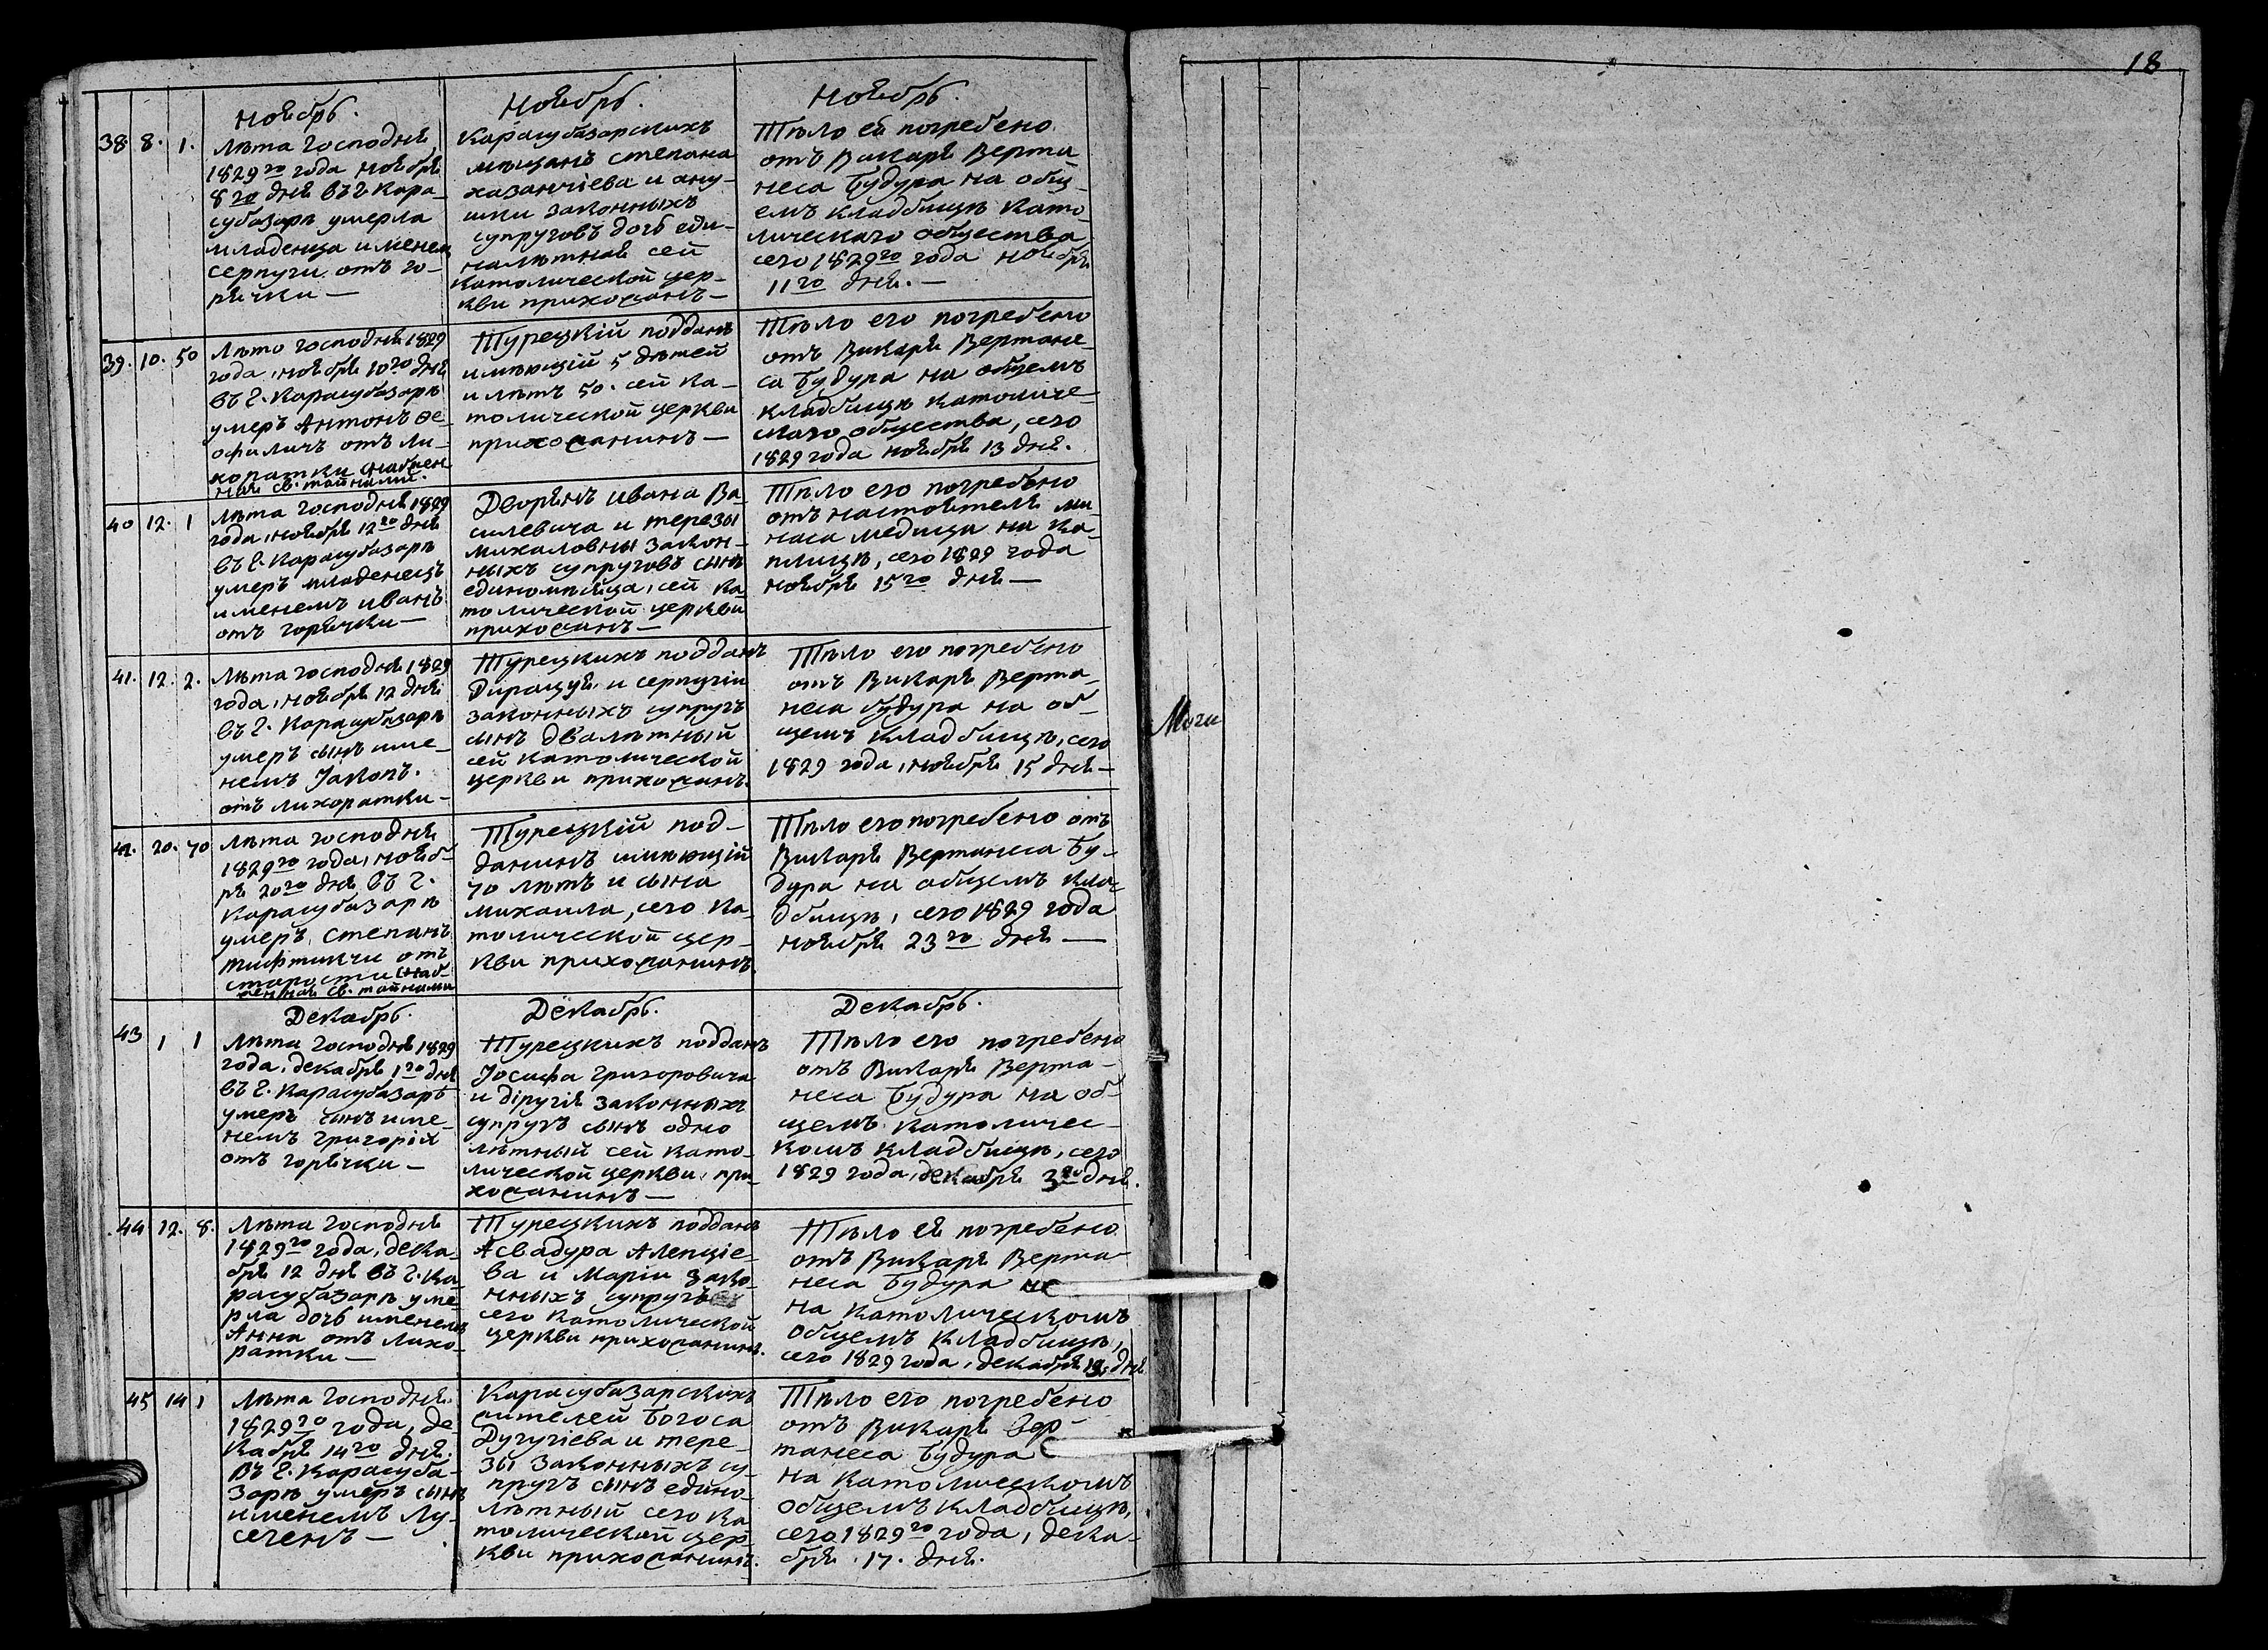 18
Ноябрь.
38 8. 1. Лѣта Господня
1829го года ноября
8го дня въ г. Кара-
субазарѣ умерла
младенца именем
серпуги отъ го-
рячки —
Ноябрь.
Карасубазарскихъ
мѣщанъ степана
казанчіева и ану-
шки законныхъ
супруговъ дочь еди-
налѣтная сей
католической цер-
кви прихожанъ —
Ноябрь.
Тѣло ей погребено
отъ Викаря Верта
неса Будура на общ-
емъ кладбищѣ като-
лическаго общества
сего 1829го года ноября
11го дня. —
39. 10. 50 Лѣто господня 1829
года, ноября 10го дня
въ г. Карасубазарѣ
умеръ Антонъ Ѳе-
офиличъ отъ ли-
хоратки снабжен
ная св. тайнами.
Турецкій подданъ
имѣющій 5 дѣтей
и лѣтъ 50. сей ка-
толической церкви
прихожанинъ —
Тѣло его погребено
отъ Викаря Вертане-
са Будура на общемъ
кладбищѣ католиче-
скаго общества, сего
1829 года ноября 13 дня.
40 12. 1 Лѣта господня 1829
года, ноября 12го дня
въ г. Карасубазарѣ
умеръ младенецъ
именемъ иванъ
отъ горячки —
Дворянъ ивана Ва-
силевича и терезы
михаловны закон-
ныхъ супруговъ сынъ
единомѣсяца, сей ка-
толической церкви
прихожанъ —
Тѣло его погребено
отъ настоятеля ми-
наса медица на ка-
плицѣ, сего 1829 года
ноября 15го дня —
41. 12. 2. Лѣта господня 1829
года, ноября 12 дня
въ г. Карасубазарѣ
умеръ сынъ име-
немъ Јакопъ.
отъ лихоратки —
Турецкихъ подданъ
Дирацуя, и серпугіи
законныхъ супругъ
сынъ двалѣтный
сей католической
церкви прихожанъ.
Тѣло его погребено
отъ Викаря Верта-
неса будура на об-
щемъ кладбищѣ, сего
1829 года, ноября 15 дня —
Моги
42. 20. 70 Лѣта господня
1829го года, нояб-
ря 20го дня въ г.
Карасубазарѣ
умеръ, степанъ
тифтикчи отъ
старости снаб-
женная св. тайнами
Турецкій под-
данинъ имѣющій
70 лѣтъ и сына
михаила, сего ка-
толической цер-
кви прихожанинъ.
Тѣло его погребено отъ
Викаря Вертанеса Бу-
дура на общемъ кла-
дбищѣ, сего 1829 года
ноября 23го дня —
Декабрь.
43 1 1 Лѣта господня 1829
года, декабря 1го дня
въ г. Карасубазарѣ
умеръ сынъ име-
немъ григорій
отъ горячки —
Декабрь.
Турецкихъ подданъ
Јосифа григоровича
и діругія законныхъ
супругъ сынъ одно
лѣтный сей като-
лической церкви, при-
хожанинъ —
Декабрь.
Тѣло его погребено
отъ Викаря Верта-
неса Будура на об-
щемъ католичес-
комъ кладбищѣ, сего
1829 года, декабря 3го дня.
44 12. 8. Лѣта господня
1829го года, дека-
бря 12 дня въ г. Ка-
расубазарѣ уме-
рла дочь именемъ
Анна отъ лихо-
ратки —
Турецкихъ подданъ
Асвадура Алепціе-
ва и Маріи зако-
нныхъ супругъ
сего католической
церкви прихожанинъ.
Тѣло ея погребено
отъ Викаря Верта-
неса Будура
на католическомъ
общемъ кладбищѣ,
сего 1829 года, декабря дня
45 14 1 Лѣта господня
1829го года, де-
кабря 14го дня.
въ г. Карасуба-
зарѣ умеръ сынъ
именемъ Лу-
сегенъ —
Карасубазарскихъ
жителей Богоса
Дугугіева и тере-
зы законныхъ су-
пругъ сынъ едино-
лѣтный сего ка
толической цер-
кви прихожанинъ.
Тѣло его погребено
отъ Викаря Вер-
танеса Будура
на католическомъ
общемъ кладбищѣ,
сего 1829го года, дека-
бря 17. дня.